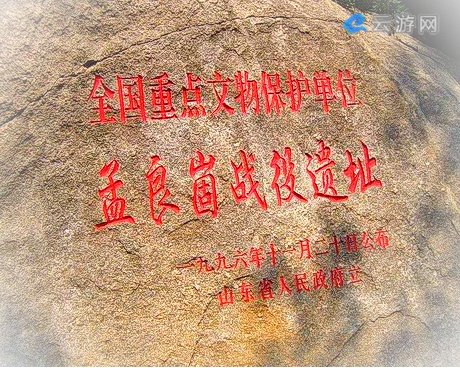 云游网
全国重点文物保护单位
孟良崮战役遗址
一九九六年十一月二十日公布
山东省人民政府立